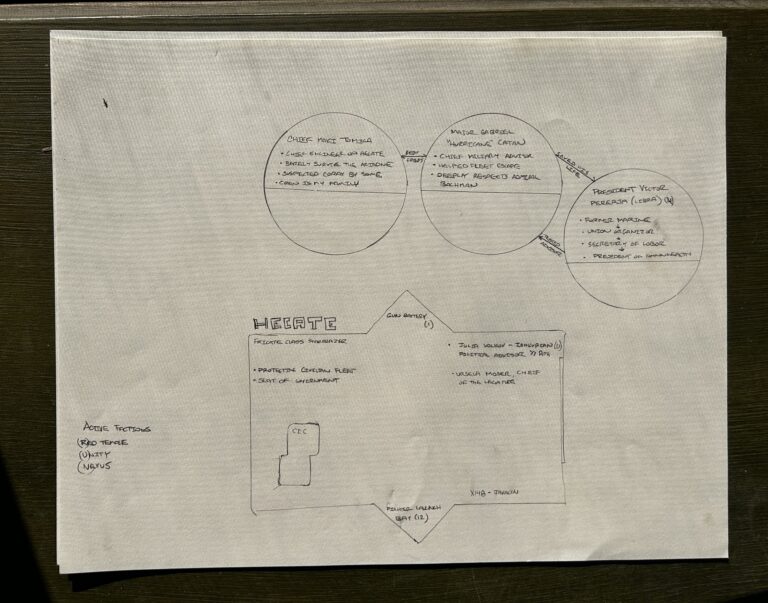 CHIEF MAKI TOMICA
• CHIEF ENGINEER OF HECATE
• BARELY SURVIVE THE
• SUSPECTED CORRY BY SOME
• CREW IS MY FAMILY
BEST
MAJOR GABRIEL
"HURRICANE" CATAN
• CHIEF MILITARY ADVISOR
• HELPED FLEET ESCAPE
• DEEPLY RESPECTS ADMIRAL
BACHMAN
SAVED HIS
LIFE
PRESIDENT VICTOR
PEREIRA (LIBRA) (U)
• FORMER MARINE
• UNION ORGANIZOR
• SECRETARY OF LABOR
• PRESIDENT OF
ADVISOR
HECATE
FRIGATE CLASS
• PROTECTING CIVILIAN FLEET
• SEAT OF GOVERNMENT
GUN BATTERY
(1)
• JULIA
POLITICAL ADVISOR
• URSULA MODER, CHIEF
OF THE
CIC
FIGHTER LAUNCH
BAY (12)
ACTIVE FACTIONS
(R)ED TEMPLE
(U)NITY
(N)EXUS